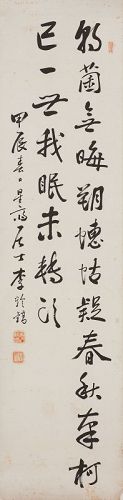 朝菌無晦朔蟪蛄疑春秋南柯
已一世我眠未轉頭
甲辰春日星居士李